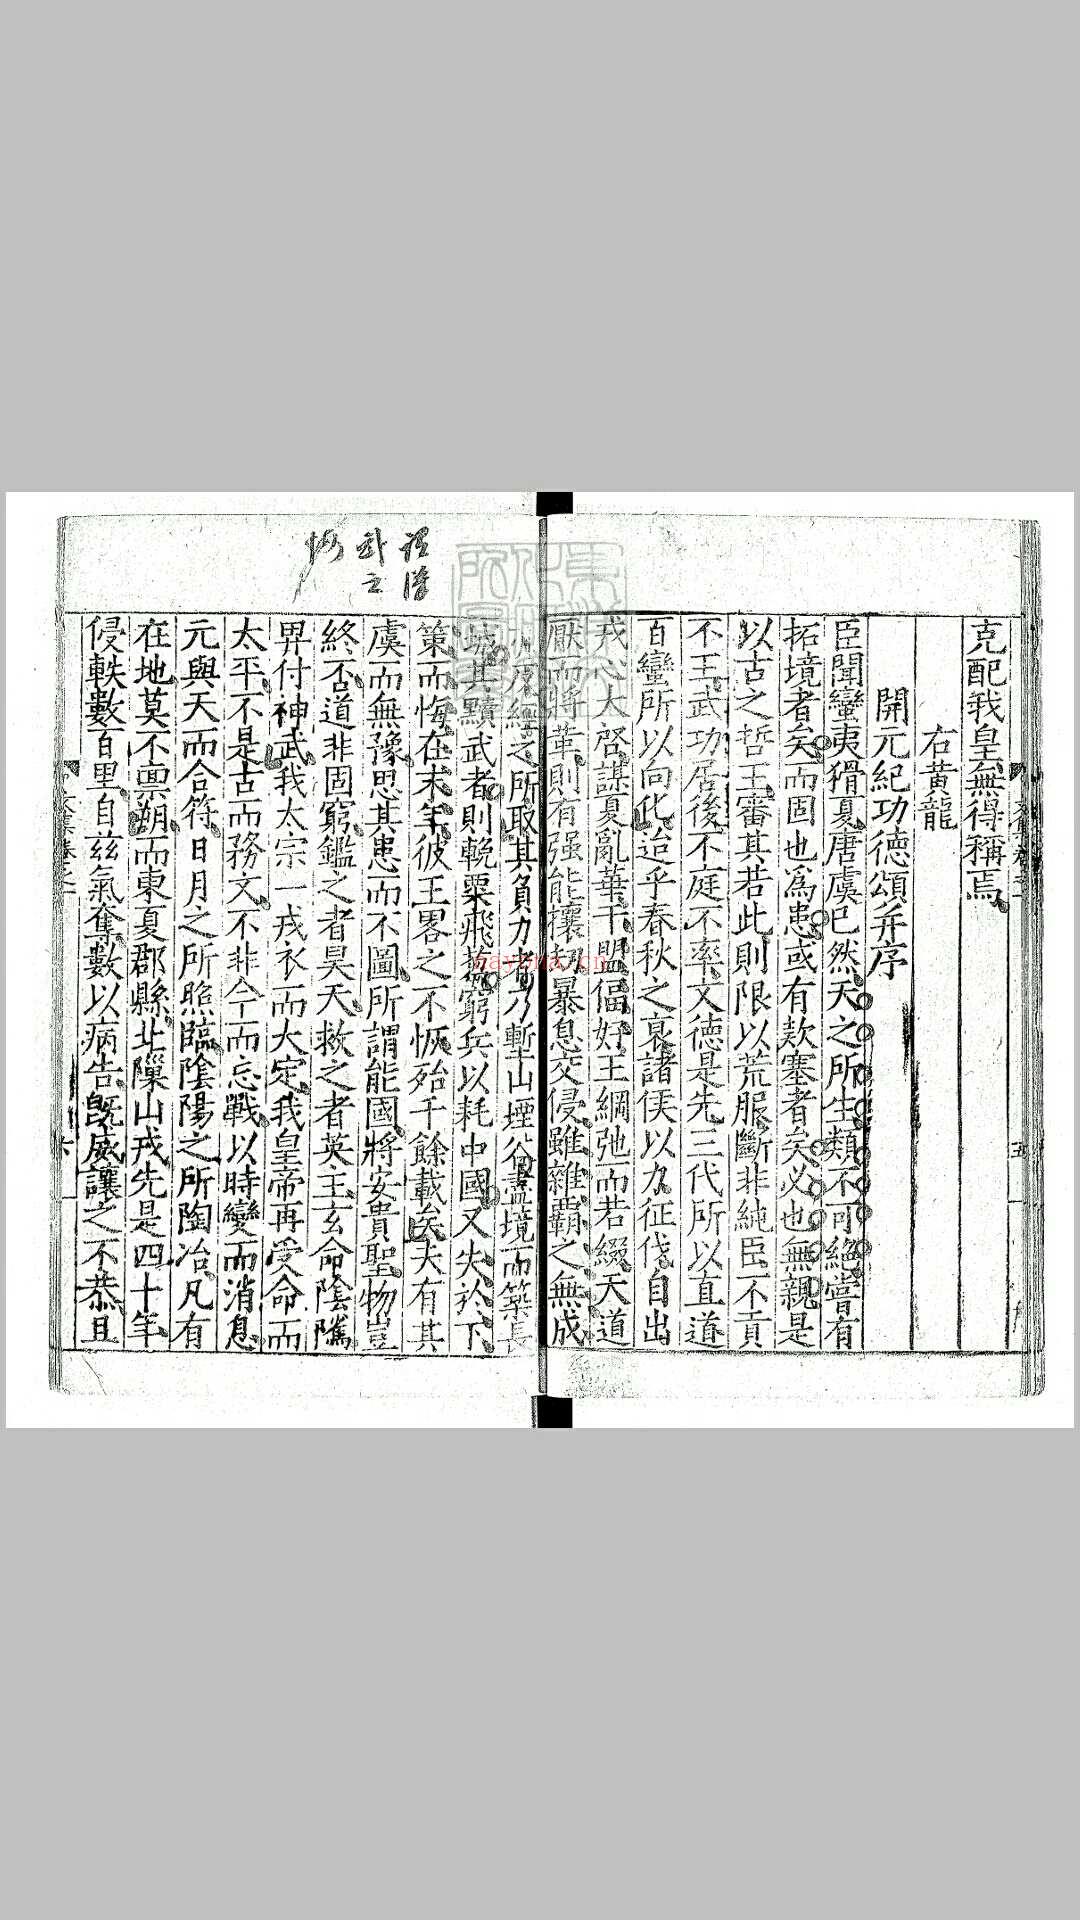 克配我皇無得稱焉
右黃龍
開元紀功德頌并序
臣聞蠻夷猾夏唐虞已然天之所生類不可絕嘗有
拓境者矣而固也爲患或有欵塞者矣必也無親是
以古之哲王審其若此則限以荒服斷非純臣不貢
不王武功居後不庭不率文德是先三代所以直道
百蠻所以向化迨乎春秋之衰諸侯以力征伐自出
戎心大啓謀夏亂華干盟偪好王綱弛而若綴天道
厭而將革則有强能攘却暴息交侵雖雜霸之無成
之所取其負力者乃塹山堙谷盡境而築長
城其黷武者則輓粟飛芻窮兵以耗中國又失於下
策而悔在末年彼王畧之不恢殆千餘載矣夫有其
虞而無豫思其患而不圖所謂能國將安貴聖物豈
終否道非固窮鑑之者昊天救之者英主玄命陰騭
畀付神武我太宗一戎衣而大定我皇帝再受命而
太平不是古而務文不非今而忘戰以時變而消息
元與天而合符日月之所照臨陰陽之所陶冶凡有
在地莫不稟朔而東夏郡縣北隟山戎先是四十年
侵軼數百里自兹氣奪數以病告旣威讓之不恭且